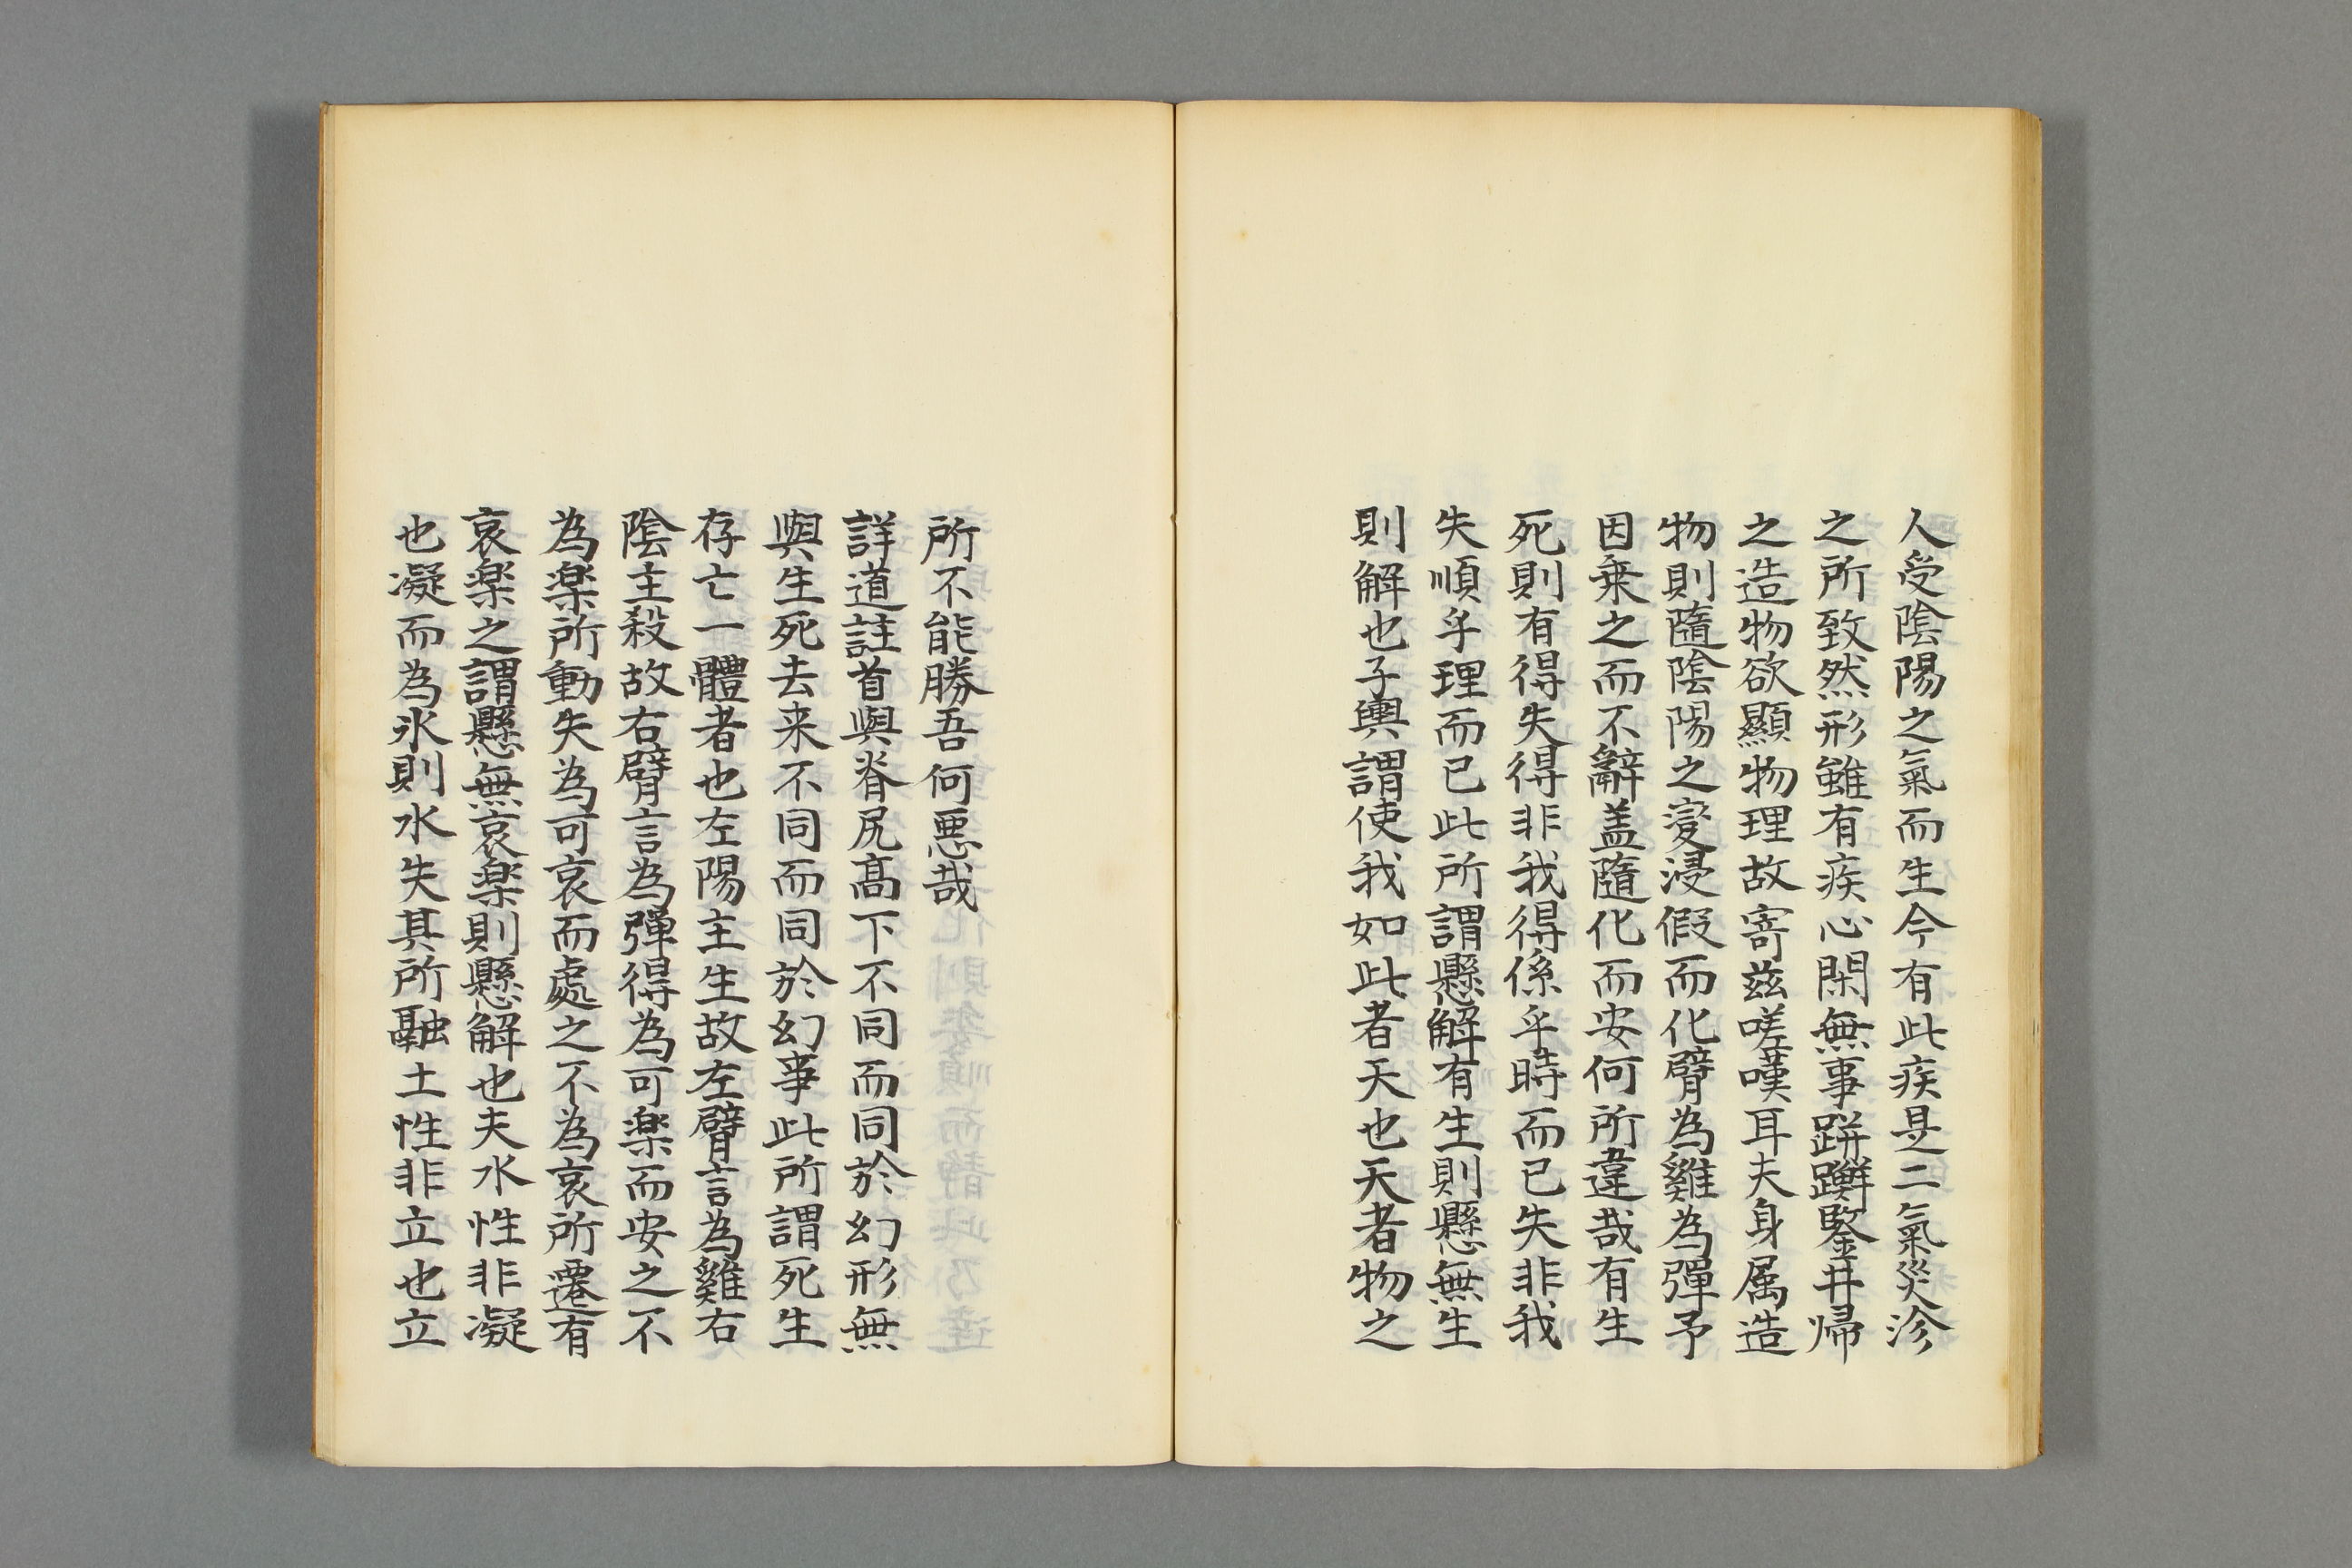 人受陰陽之氣而生今有此疾是二氣災沴
之所致然形雖有疾心閑無事跰𨇤鑒井帰
之造物欲顯物理故寄茲嗟嘆耳夫身属造
物則隨陰陽之變浸假而化臂為雞為彈予
因乗之而不辭盖隨化而安何所違哉有生
死則有得失得非我得係乎時而已失非我
失順乎理而已此所謂懸解有生則懸無生
則解也子輿謂使我如此者天也天者物之
所不能勝吾何悪哉
詳道註首與脊尻髙下不同而同於幻形無
與生死去来不同而同於幻事此所謂死生
存亡一體者也左陽主生故左臂言為雞右
陰主殺故右臂言為彈得為可楽而安之不
為楽所動失為可哀而處之不為哀所遷有
哀楽之謂懸無哀楽則懸解也夫水性非凝
也凝而為氷則水失其所融土性非立也立